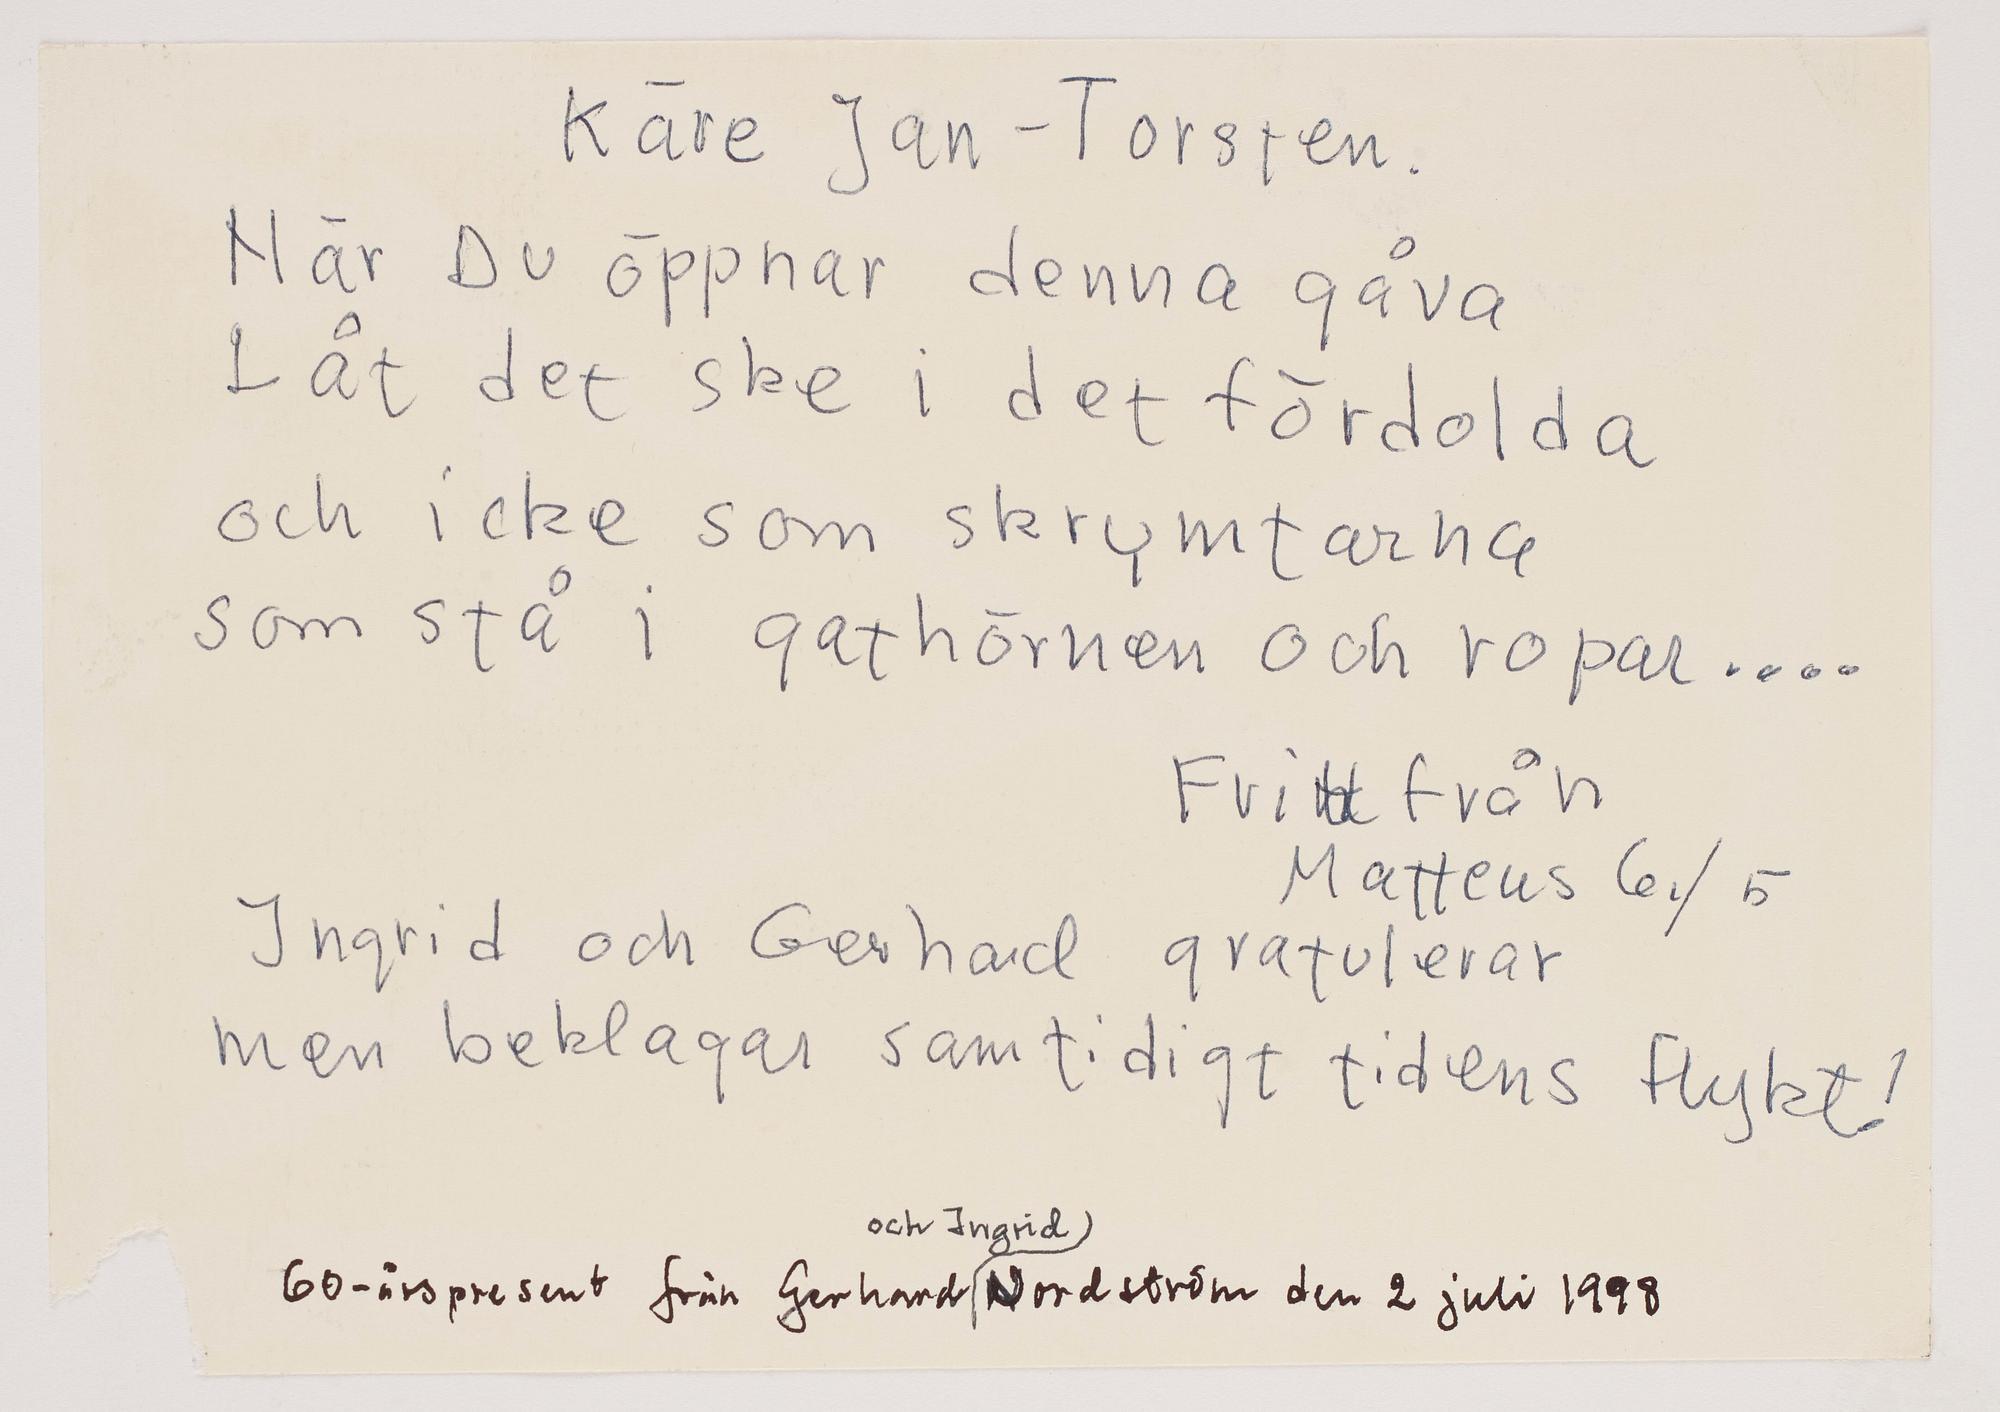 Käre Jan-Torsten.
När Du öppnar denna gåva
Låt det ske i det fördolda
och icke som skrymtarna
som stå i gathörnen och ropar....
Fritt från
Matteus 6./5
Ingrid och Gerhard gratulerar
men beklagar samtidigt tidens flykt!
och Ingrid
60-årspresent från Gerhard Nordström den 2 juli 1998